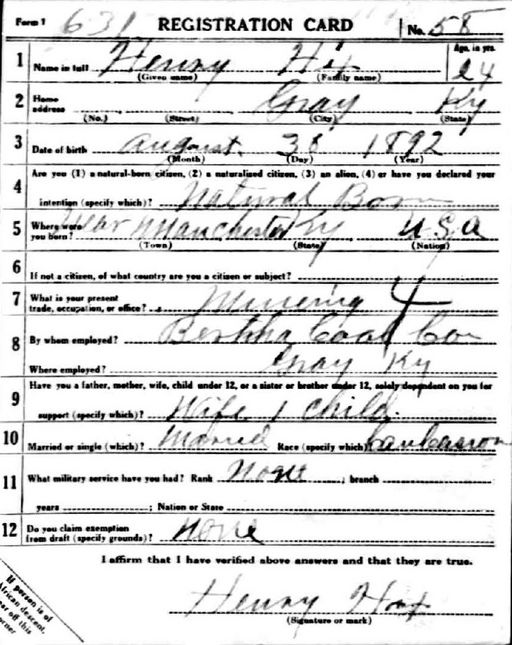 Form 1 631 REGISTRATION CARD No. 58
1 Name in full Henry Hix Age, in yrs. 24
(Given name) (Family name)
2 Home address Gray Ky
(No.) (Street) (City) (State)
3 Date of birth August 30 1892
(Month) (Day) (Year)
4 Are you (1) a natural-born citizen, (2) a naturalized citizen, (3) an alien, (4) or have you declared your
intention (specify which)? Natural Born
5 Where were you born? Near Manchester Ky U S A
(Town) (State) (Nation)
6 If not a citizen, of what country are you a citizen or subject?
7 What is your present trade, occupation, or office? Minering 4
8 By whom employed? Bertha Coal Co
Where employed? Gray Ky
9 Have you a father, mother, wife, child under 12, or a sister or brother under 12, solely dependent on you for
support (specify which)? Wife 1 child.
10 Married or single (which)? Married Race (specify which)
11 What military service have you had? Rank None ; branch
years ; Nation or State
12 Do you claim exemption from draft (specify grounds)? None
I affirm that I have verified above answers and that they are true.
Henry Hix
(Signature or mark)
If person is of
African descent,
tear off this
corner